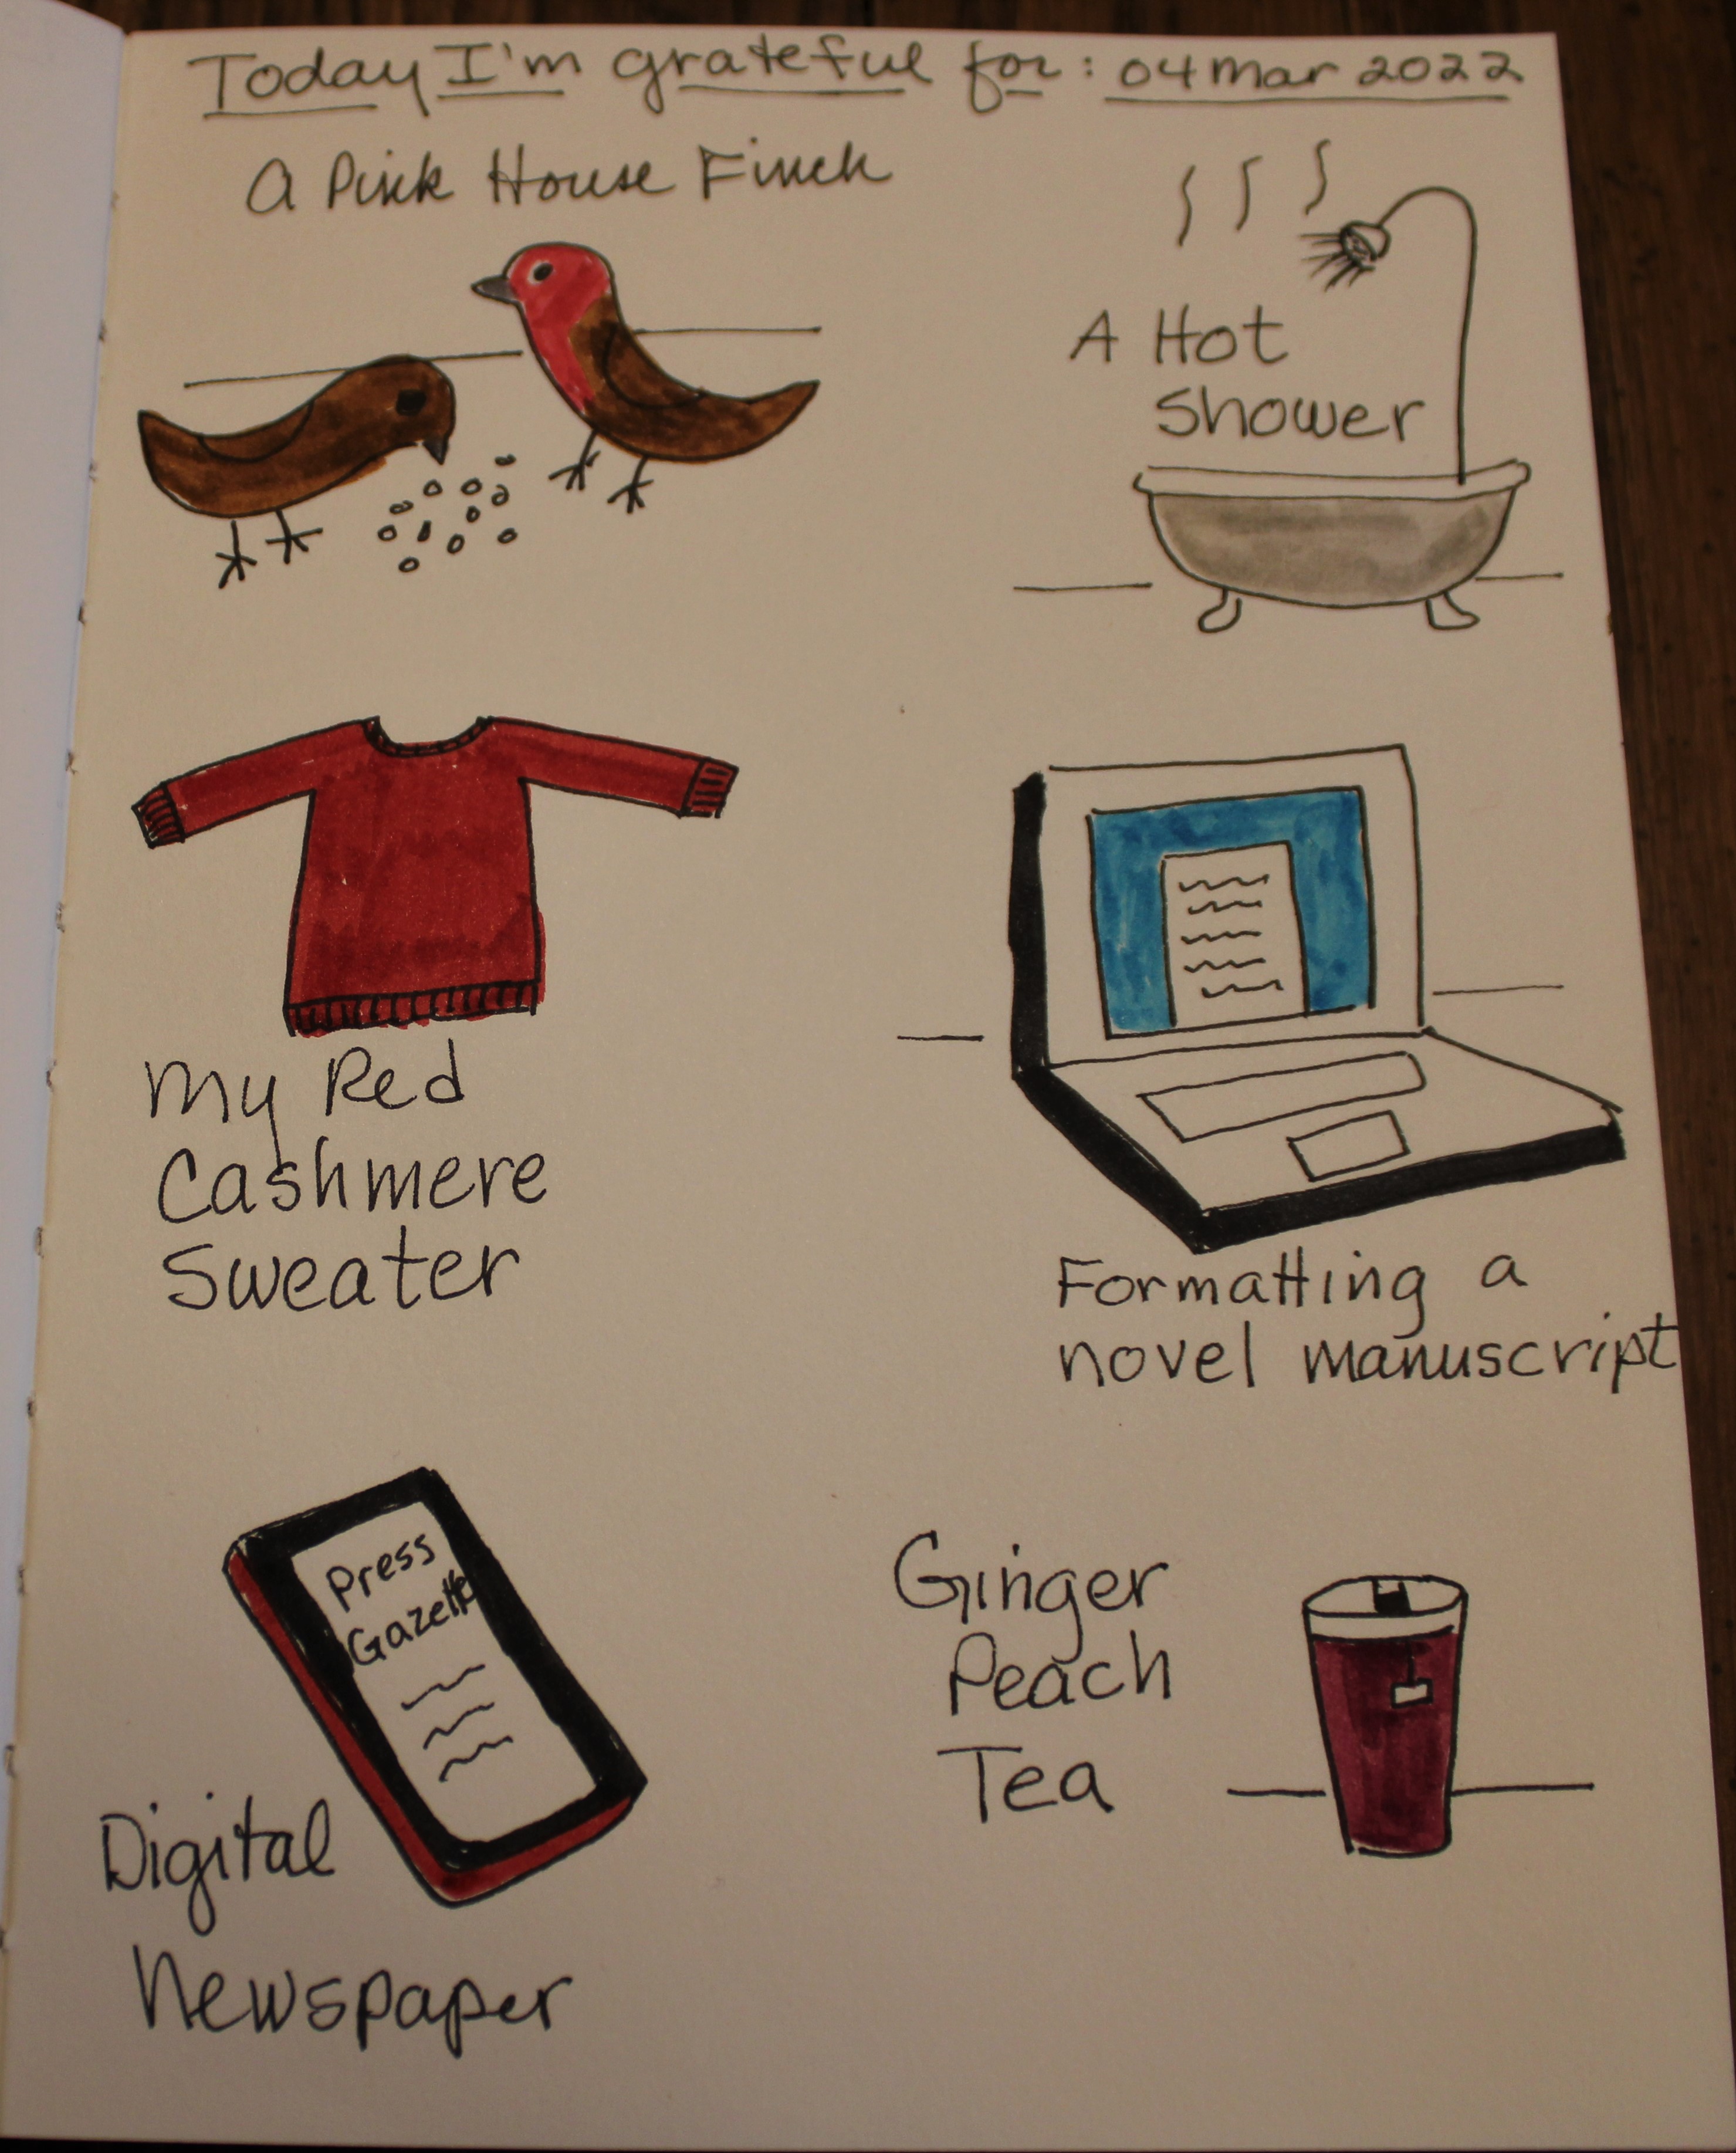 Today I'm grateful for: 04 Mar 2022
A Pink House Finch
A Hot
Shower
My Red
Cashmere
Sweater
Formatting a
novel manuscript
Press
Gazette
Digital
Newspaper
Ginger
Peach
Tea